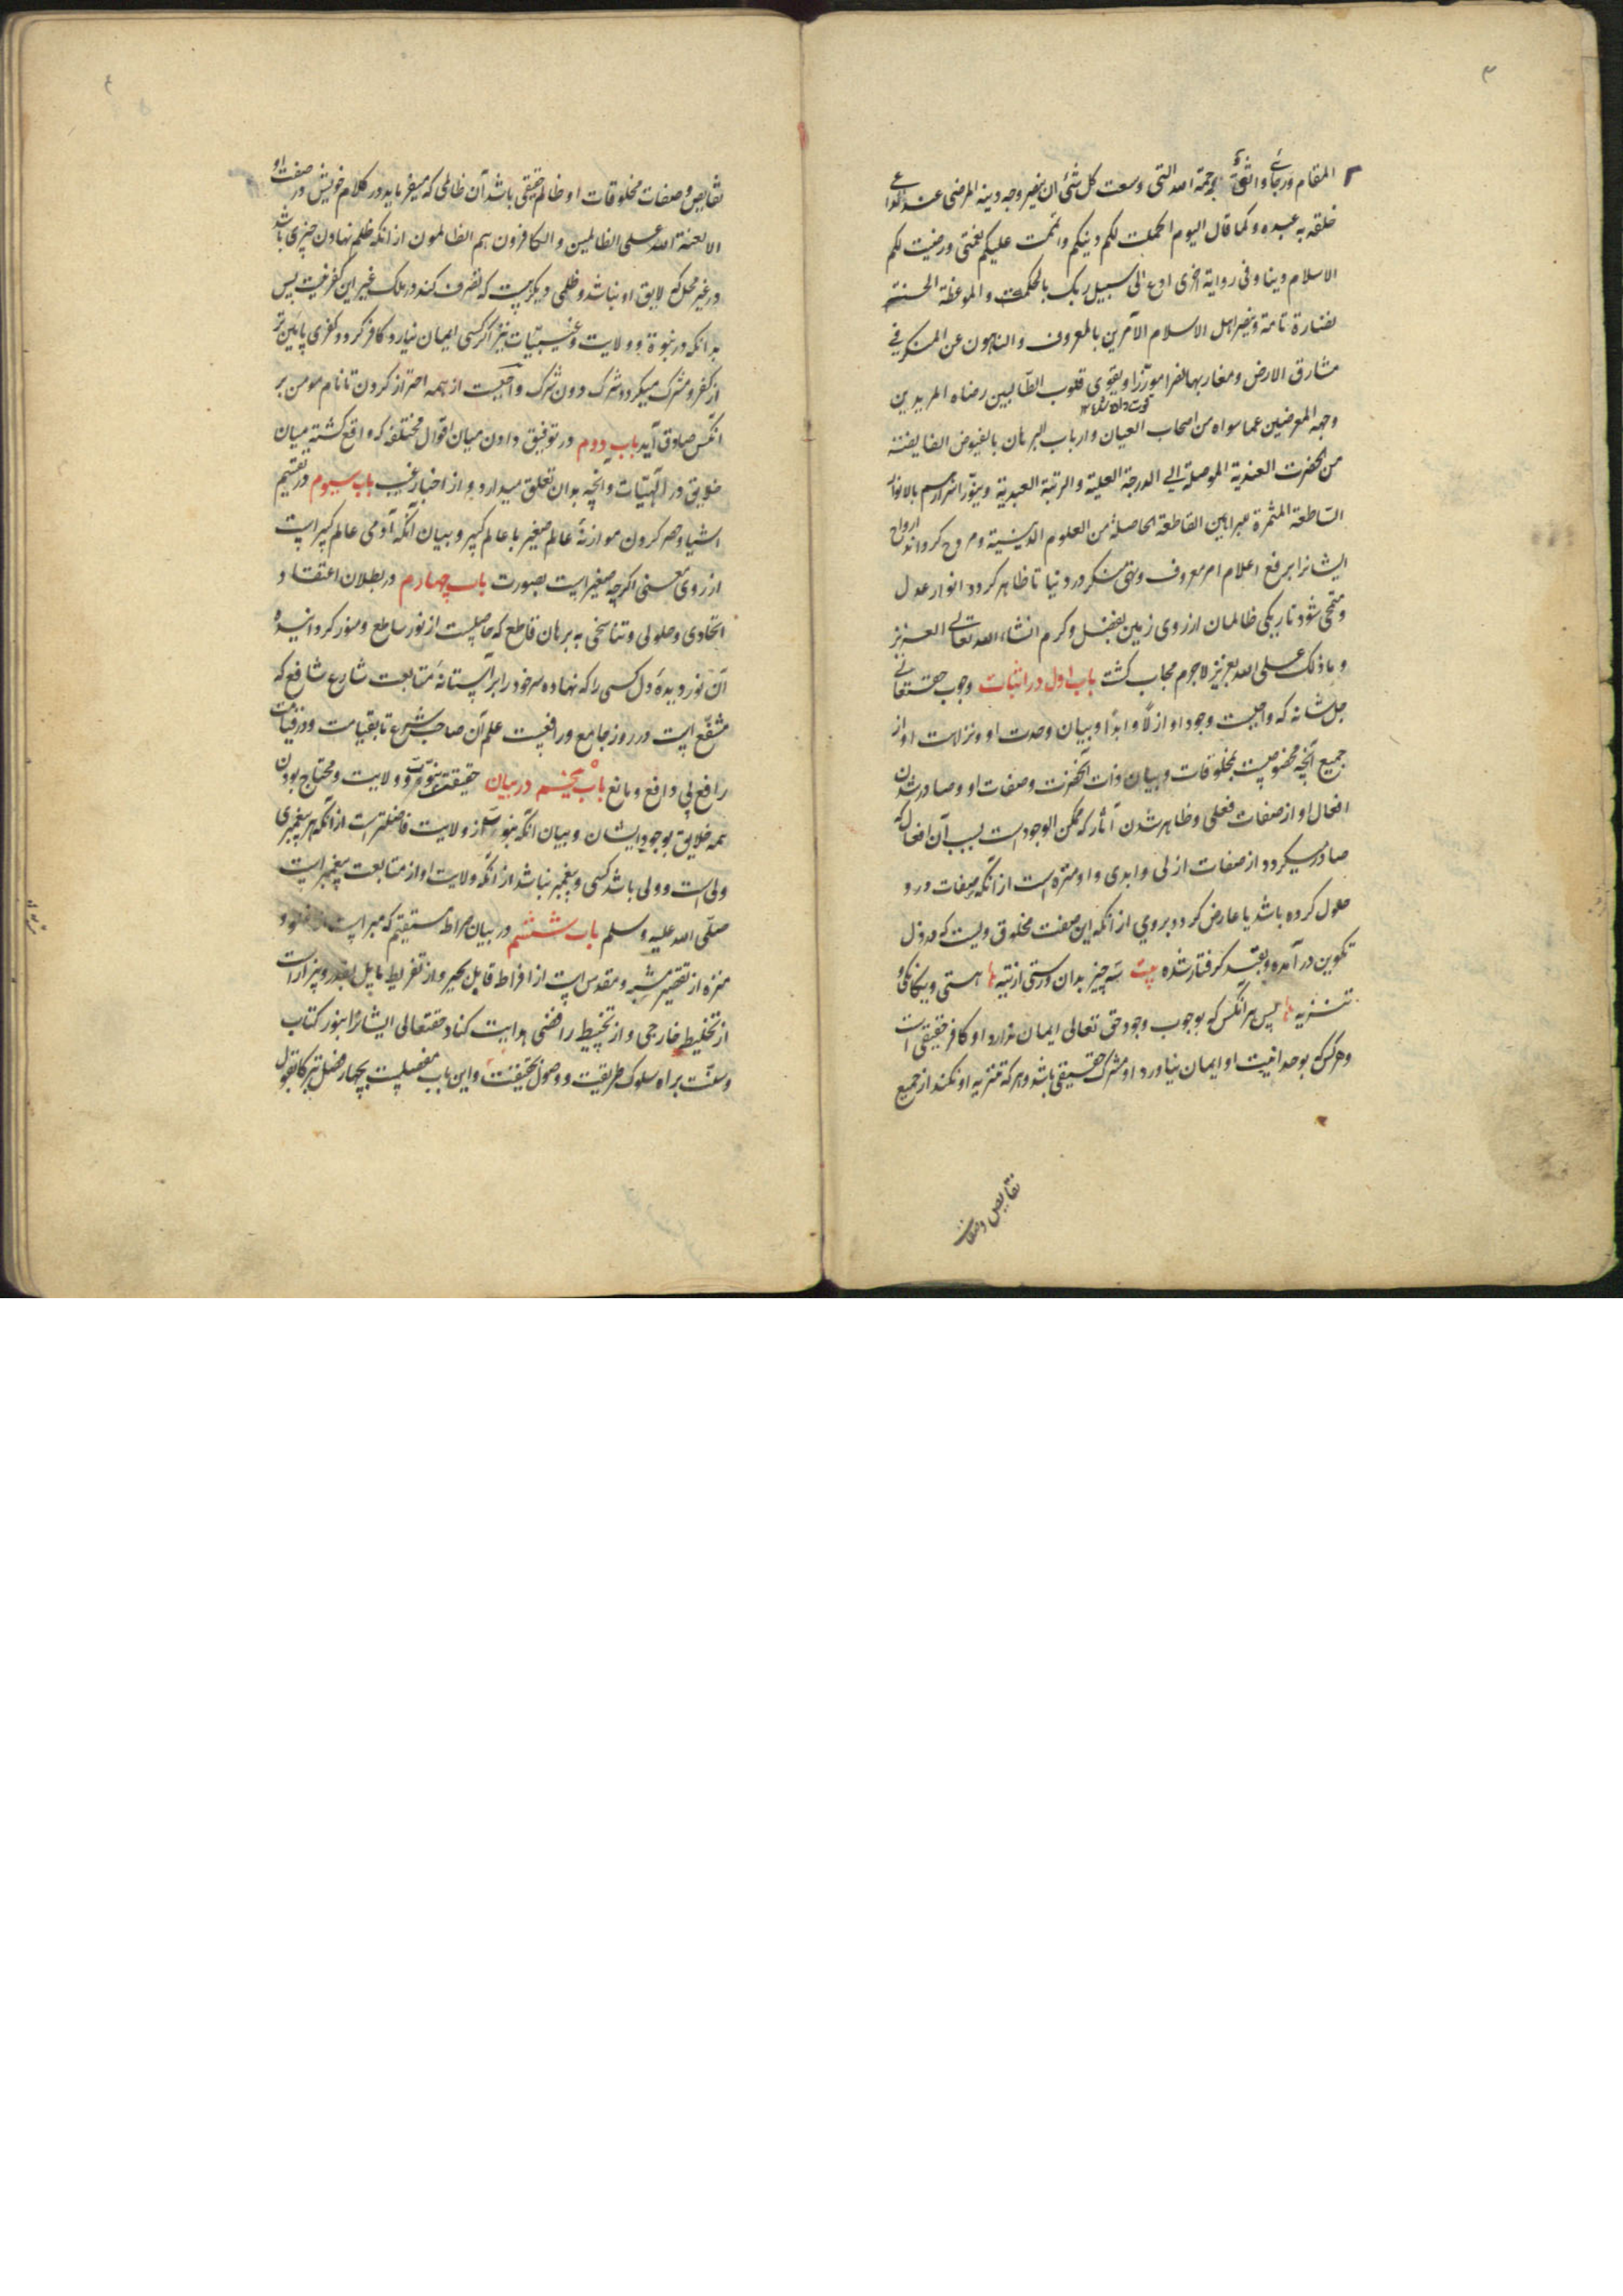 ۳
المقام ورجائی واثق برحمة الله التی وسعت کل شئ ان ینصر وجه دینه المرضی عند
خلقه به عبده وکما قال الیوم اکملت لکم دینکم واتممت علیکم نعمتی ورضیت لکم
الاسلام دینا وفی روایة اخری ادع الی سبیل ربک بالحکمت والموعظة الحسنة
نضارة تامة وینصر اهل الاسلام الآمرین بالمعروف والناهون عن المنکر فی
مشارق الارض ومغاربها نصرا موزرا ویقوی قلوب الطالبین رضاه المریدین
وجهه المعرضین عما سواه من اصحاب العیان وارباب البرهان بالفیوض الفایضة
من الحضرت العندیة الموصلة الی الدرجة العلیة والرتبة العبدیة وینور اسرارهم بالانوار
الساطعة المثمرة عبراهین القاطعة الحاصلة من العلوم الدینیة ومروح کرداند ارواح
ایشانرا برفع اعلام امر معروف ونهی منکر در دنیا تا ظاهر کردد انوار عدل
ومنمحی شود تاریکی ظالمان از روی زمین بفضل وکرم انشاء الله تعالی العزیز
وما ذلک علی الله بعزیز لاجرم مجاب کشت باب اول در اثبات وجوب حقتعالی
جل شانه که واجبست وجود او ازلا وابدا وبیان وحدت او ونزاهت او از
جمیع آنچه مخصوصست بمخلوقات وبیان ذات آنحضرت وصفات او وصادر شدن
افعال او از صفات فعلی وظاهر شدن آثار که ممکن الوجود است بسبب آن افعال که
صادر میکردد از صفات ازلی وابدی واو منزه است از آنکه صفات در و
حلول کرده باشد یا عارض کردد بروی از آنکه این صفت مخلوق ویست که در ذل
تکوین در آمده وبقید کرفتار شده بیت سه چیز بدان ورستی از تیه ها هستی ویکانکی و
تنزیه ها پس هر آنکس که بوجوب وجود حق تعالی ایمان ندارد او کافر حقیقی است
وهر کس که بوحدانیت او ایمان نیاورد او مشرک حقیقی باشد وهر که تنزیه او نکند از جمیع
نقایص وصفات
۴
نقایص وصفات مخلوقات او ظالم حقیقی باشد آن ظالمی که میفرماید در کلام خویش در صفت او
الا لعنة الله علی الظالمین والکافرون هم الظالمون از آنکه ظلم نهادن چیزی باشد
در غیر محل که لایق او نباشد وظلمی دیکر هست که تصرف کند در ملک غیر این کفر نیست پس
بدانکه در نبوة وولایت وغیبیات نیز اکر کسی ایمان نیارد کافر کردد وکفری پایین تر
از کفر ومشرک میکردد شرک دون شرک واجبست از همه احتراز کردن تا نام مومن بر
آنکس صادق آید باب دوم در توفیق دادن میان اقوال مختلفه که واقع کشته میان
خلایق در الهیات وانچه بدان تعلق میدارد واز اخبار غیب باب سیوم در تقسیم
اشیا وحصر کردن موازنهٔ عالم صغیر با عالم کبیر وبیان آنکه آدمی عالم کبیر است
از روی معنی اکرچه صغیر است بصورت باب چهارم در بطلان اعتقاد
اتحادی وحلولی وتناسخی به برهان قاطع که حاصلست از نور ساطع ومنور کردانیده
آن نور دیدهٔ دل کسی را که نهاده سر خود را بر آستانهٔ متابعت شارع شافع که
مشفع است در روز جامع ورافعست علم آن صاحب شرع تا بقیامت ودر قیامت
رافع بی دافع ومانع باب پنجم در بیان حقیقت نبوت وولایت ومحتاج بودن
همه خلایق بوجود ایشان وبیان آنکه نبوت از ولایت فاضلتر است از آنکه هر پیغمبری
ولی است وولی باشد کسی وپیغمبر نباشد از آنکه ولایت او از متابعت پیغمبر است
صلی الله علیه وسلم باب ششم در بیان صراط مستقیم که مبراست از غلو و
منزه از تقصیر مشبه ومقدس است از افراط قایل بجبر واز تفریط مایل بقدر وبیزار است
از تخلیط خارجی واز تخبیط رافضی هدایت کناد حقتعالی ایشانرا بنور کتاب
وسنت براه سلوک طریقت ووصول بحقیقت واین باب مفصلست بچهار فصل تبرکا بقول